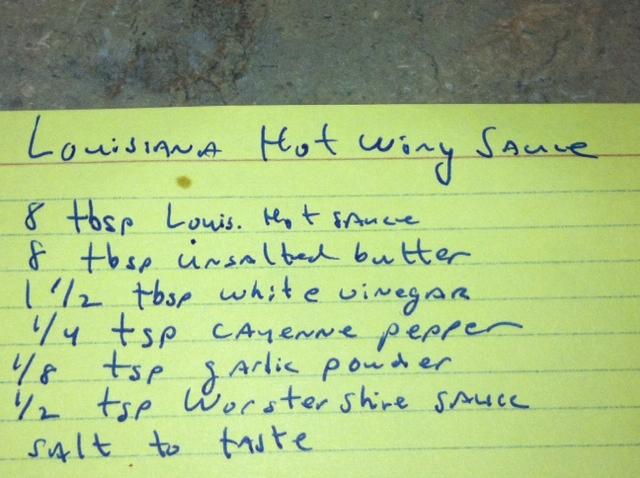 Louisiana Hot Wing Sauce
8 tbsp Louis. Hot sauce
8 tbsp unsalted butter
1 1/2 tbsp white vinegar
1/4 tsp cayenne pepper
1/8 tsp garlic powder
1/2 tsp Worstershire sauce
salt to taste